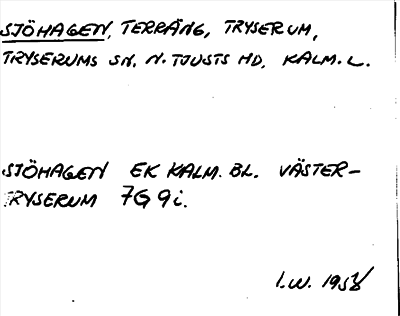 SJÖHAGEN, TERRÄNG, TRYSERUM,
TRYSERUMS SN, N. TJUSTS HD, KALM. L.
SJÖHAGEN EK KALM. BL. VÄSTER-
TRYSERUM 7G 9i.
I.W. 1958